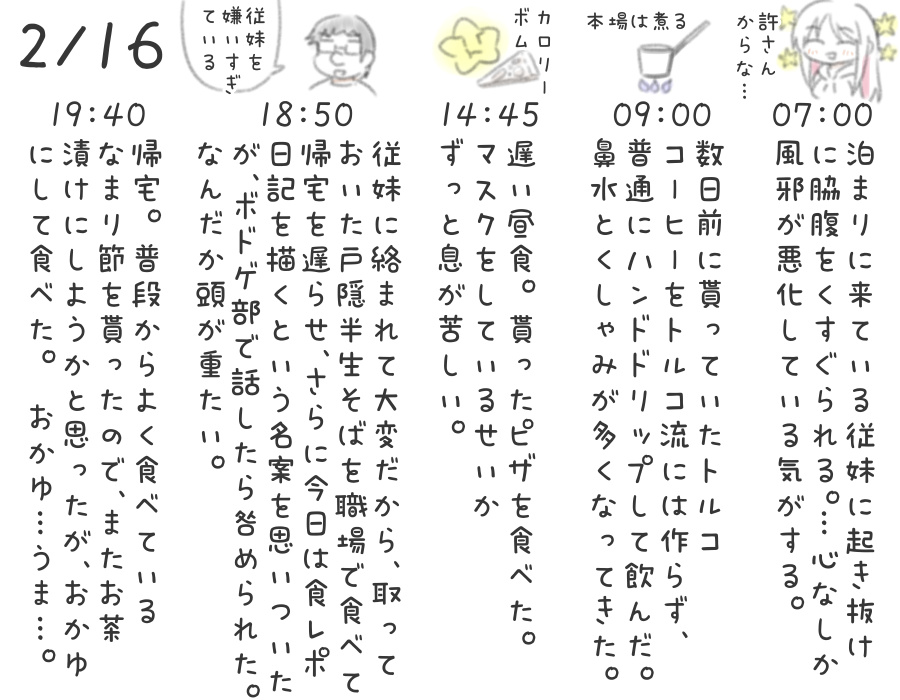 2/16
07:00
許さん
からな…
泊まりに来ている従妹に起き抜け
に脇腹をくすぐられる。…心なしか
風邪が悪化している気がする。
09:00
本場は煮る
数日前に貰っていたトルコ
コーヒーをトルコ流には作らず、
普通にハンドドリップして飲んだ。
鼻水とくしゃみが多くなってきた。
14:45
カロリー
ボム
遅い昼食。貰ったピザを食べた。
マスクをしているせいか
ずっと息が苦しい。
18:50
従妹を
嫌いすぎ
ている
従妹に絡まれて大変だから、取って
おいた戸隠半生そばを職場で食べて
帰宅を遅らせ、さらに今日は食レポ
日記を描くという名案を思いついた
が、ボドゲ部で話したら咎められた。
なんだか頭が重たい。
19:40
帰宅。普段からよく食べている
なまり節を貰ったので、またお茶
漬けにしようかと思ったが、おかゆ
にして食べた。 おかゆ…うま…。